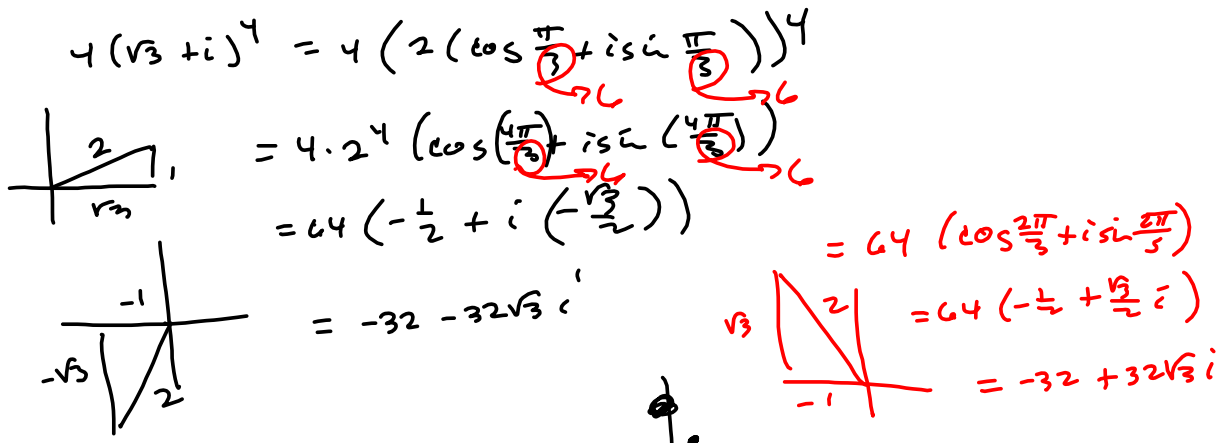 4(√3 + i)^4 = 4(2(cos π/3 + i sin π/3))^4
→6 →6
= 4 · 2^4 (cos(4π/3) + i sin(4π/3))
→6 →6
2
1
√3
= 64 (-1/2 + i(-√3/2))
= -32 - 32√3 i
-1
-√3
2
= 64 (cos 2π/3 + i sin 2π/3)
= 64 (-1/2 + √3/2 i)
= -32 + 32√3 i
√3
2
-1